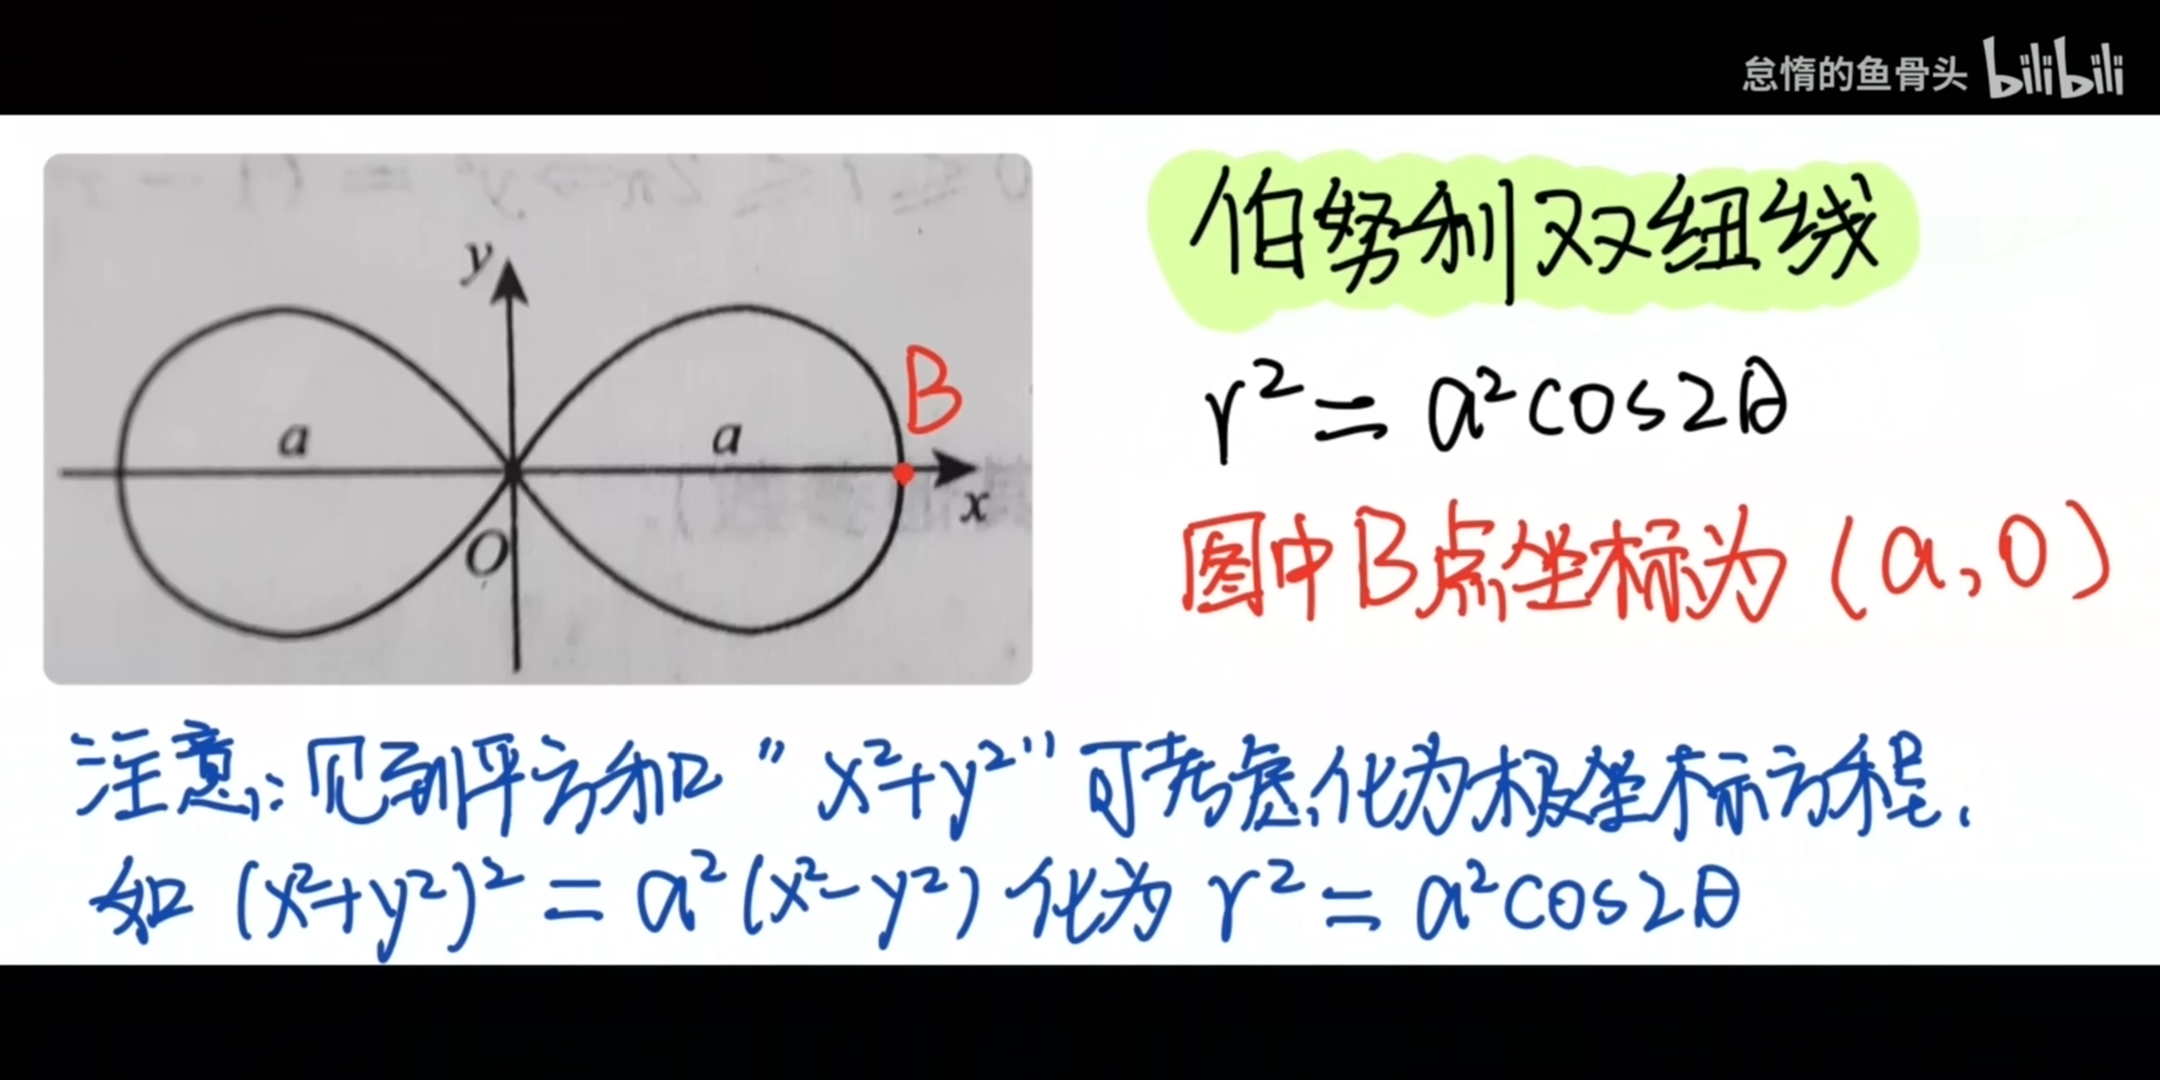 怠惰的鱼骨头 bilibili
伯努利双纽线
r² = a²cos2θ
图中B点坐标为 (a,0)
y
B
a a
x
O
注意:见到平方和 "x²+y²" 可考虑化为极坐标方程.
如 (x²+y²)² = a²(x²-y²) 化为 r² = a²cos2θ